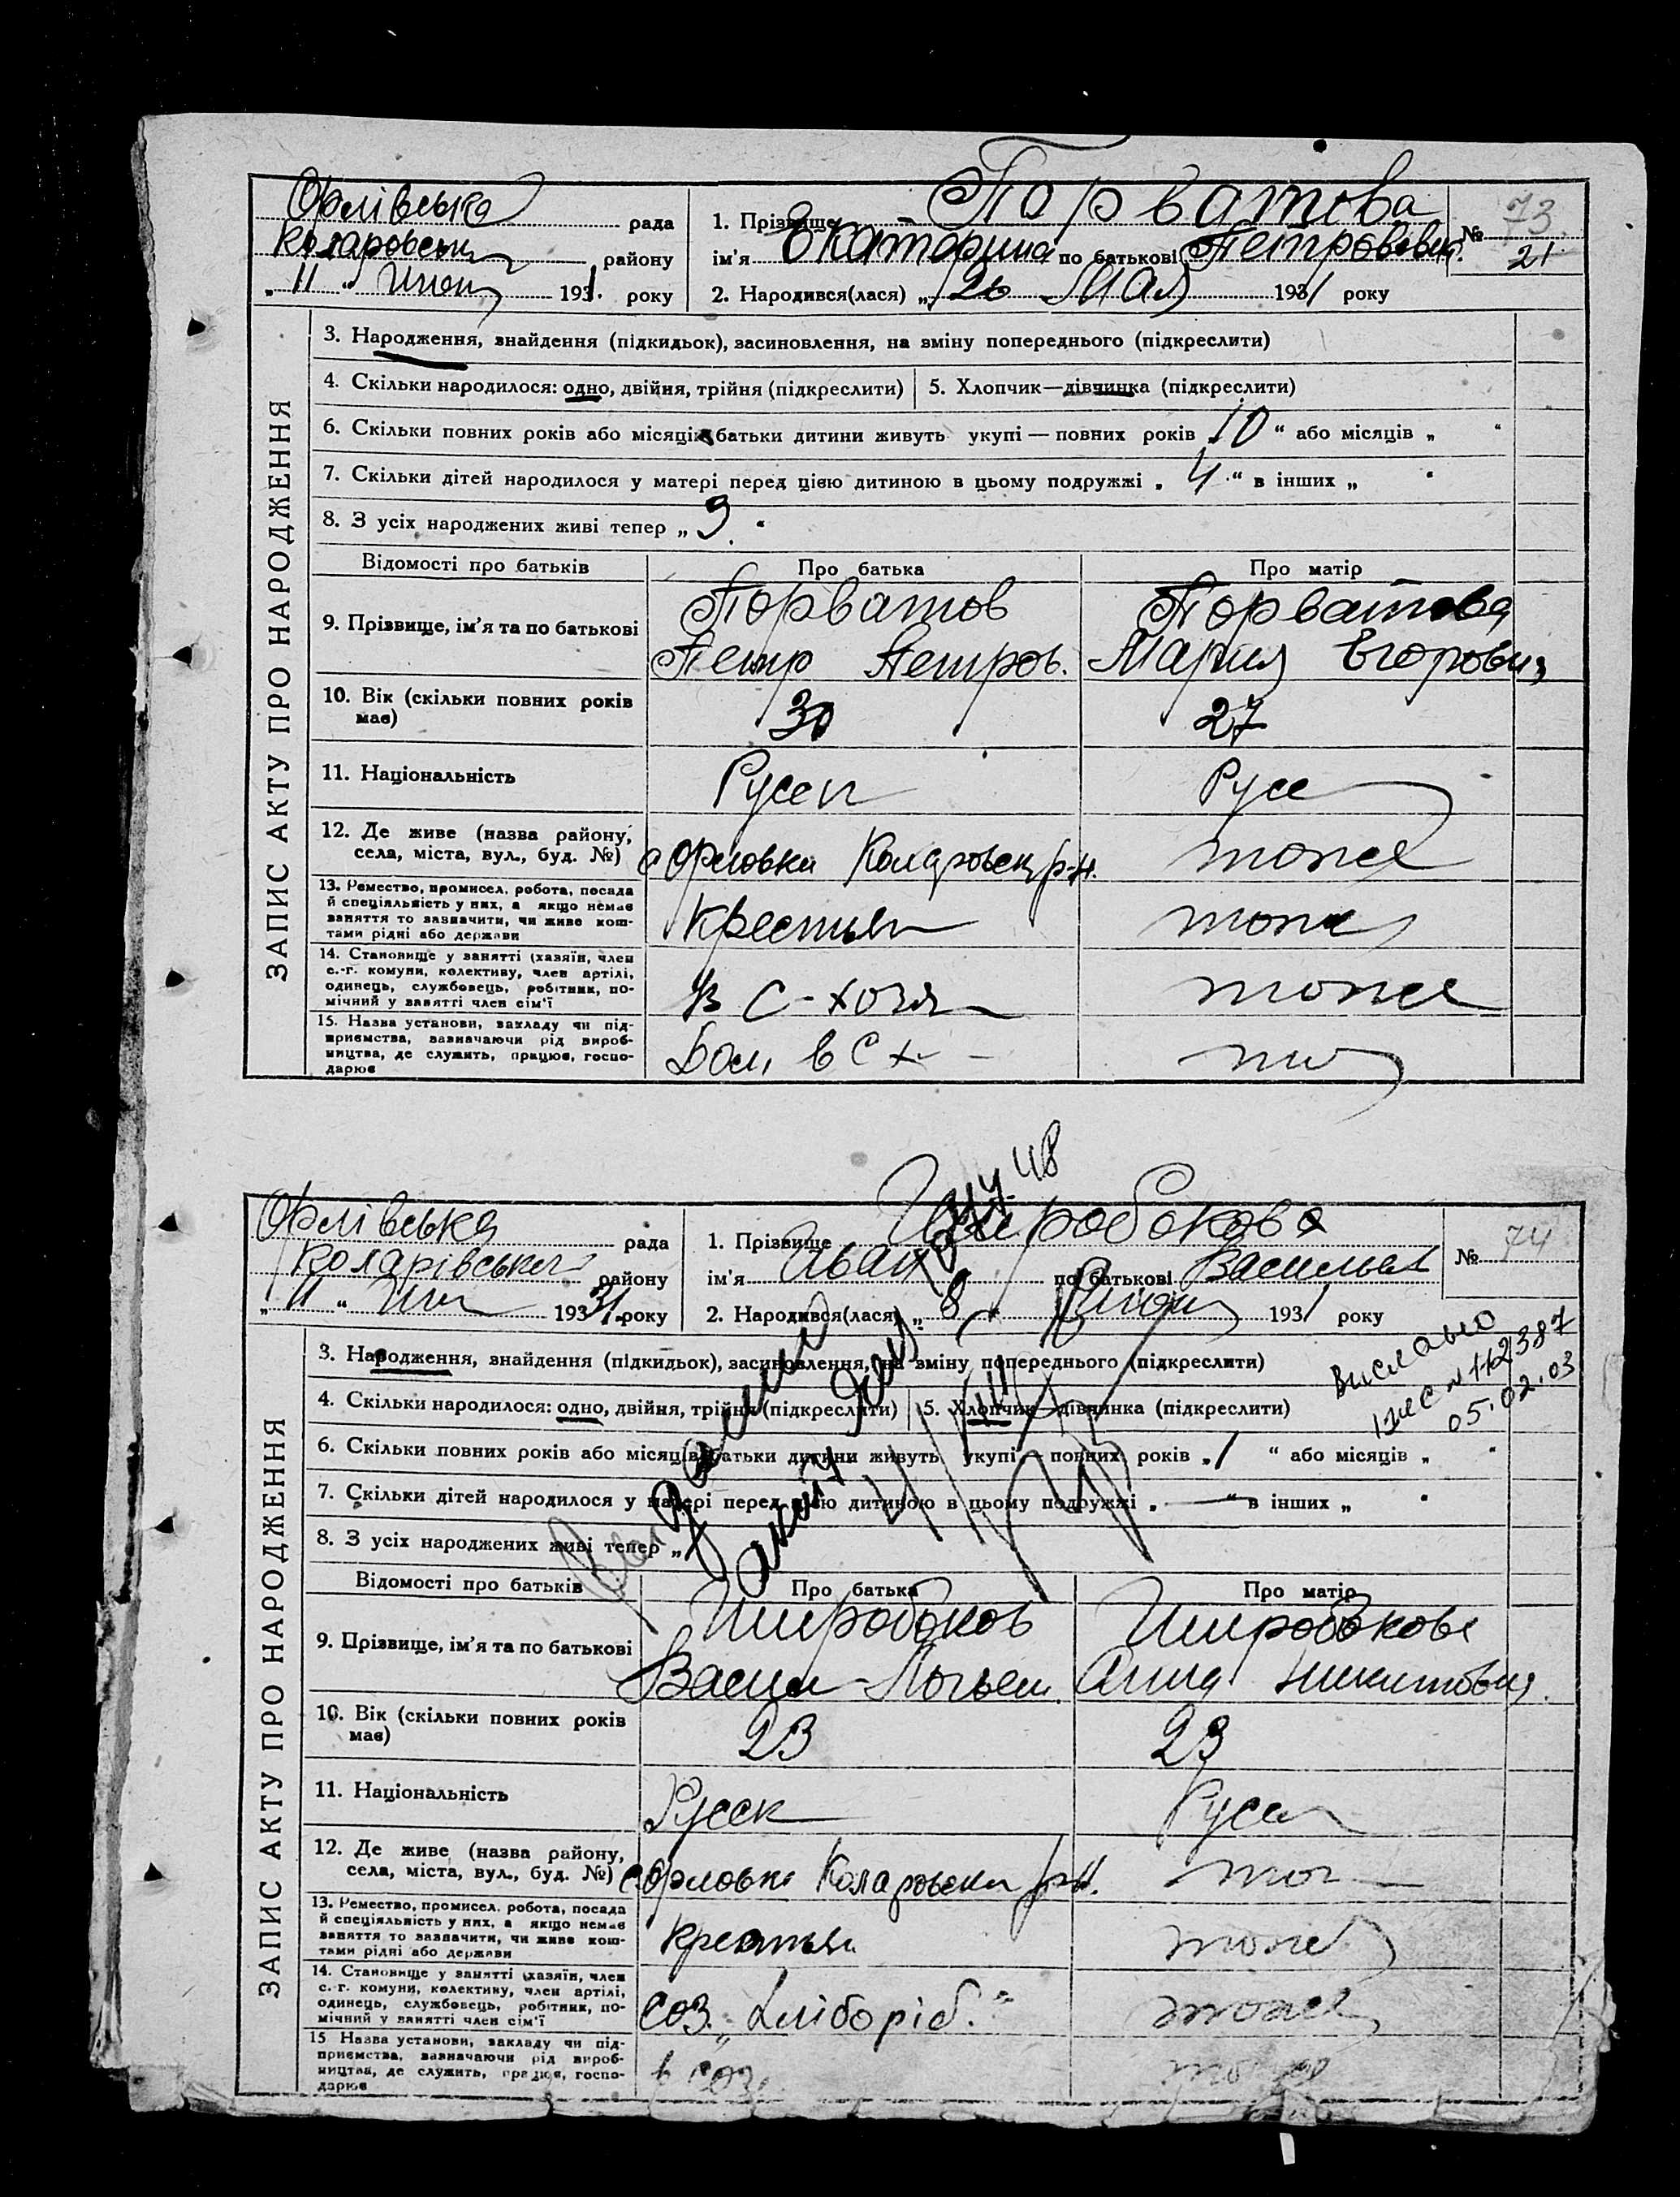 Орлівська рада
Коларовськ району
„ 11 “ Июня 1931. року
1. Прізвище Горватова
ім’я Екатерина по батькові Петрововна.
2. Народився(лася) „ 26 Мая 1931 року
№ 73
21
ЗАПИС АКТУ ПРО НАРОДЖЕННЯ
3. Народження, знайдення (підкидьок), засиновлення, на зміну попереднього (підкреслити)
4. Скільки народилося: одно, двійня, трійня (підкреслити) 5. Хлопчик—дівчинка (підкреслити)
6. Скільки повних років або місяців батьки дитини живуть укупі — повних років „ 10 “ або місяців „ “
7. Скільки дітей народилося у матері перед цією дитиною в цьому подружжі „ 4 “ в інших „ “
8. З усіх народжених живі тепер „ 3 “
Відомості про батьків Про батька Про матір
9. Прізвище, ім’я та по батькові Горватов Горватова
Петр Петров. Мария Егоровн
10. Вік (скільки повних років має) 30 27
11. Національність Русск Русс
12. Де живе (назва району, села, міста, вул., буд. №) с Орловка Коларовск р-н. тоже
13. Ремество, промисел, робота, посада й спеціяльність у них, а якщо немає заняття то зазначити, чи живе коштами рідні або держави Крестьян тоже
14. Становище у занятті (хазяїн, член с.-г. комуни, колективу, член артілі, одинець, службовець, робітник, помічний у занятті член сім’ї В С-хозя тоже
15. Назва установи, закладу чи підприємства, зазначаючи рід виробництва, де служить, працює, господарює в С х
48
Орлівська рада
Коларівськ району
„ 11 “ Июн 1931. року
1. Прізвище Широбоков
ім’я Иван по батькові Васильев
2. Народився(лася) „ 8 Июня 1931 року
№ 74
Вислано
ізвес № 112387
05.02.03
ЗАПИС АКТУ ПРО НАРОДЖЕННЯ
3. Народження, знайдення (підкидьок), засиновлення, на зміну попереднього (підкреслити)
4. Скільки народилося: одно, двійня, трійня (підкреслити) 5. Хлопчик—дівчинка (підкреслити)
6. Скільки повних років або місяців батьки дитини живуть укупі — повних років „ 1 “ або місяців „ “
7. Скільки дітей народилося у матері перед цією дитиною в цьому подружжі „ — “ в інших „ “
8. З усіх народжених живі тепер „
Відомості про батьків Про батька Про матір
9. Прізвище, ім’я та по батькові Широбоков Широбокова
Васил Анна Никитовна.
10. Вік (скільки повних років має) 23 23
11. Національність Русск Русск
12. Де живе (назва району, села, міста, вул., буд. №) с. Орловка Коларовски р-н. тож
13. Ремество, промисел, робота, посада й спеціяльність у них, а якщо немає заняття то зазначити, чи живе коштами рідні або держави Крестьян тоже
14. Становище у занятті (хазяїн, член с.-г. комуни, колективу, член артілі, одинець, службовець, робітник, помічний у занятті член сім’ї СОЗ. „Хлібороб.“ тоже
15 Назва установи, закладу чи підприємства, зазначаючи рід виробництва, де служить, працює, господарює в СОЗ. тоже